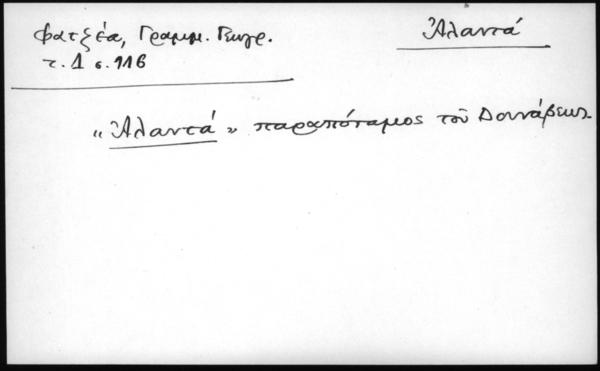 Φατζέα, Γραμμ. Γεωγρ.
τ. Δ σ. 116
Ἀλαντά
«Ἀλαντά» παραπόταμος τοῦ Δουνάβεως